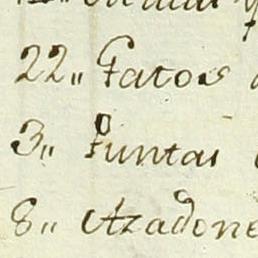 22,, Gatos
3,, Puntas
8,, Azadone